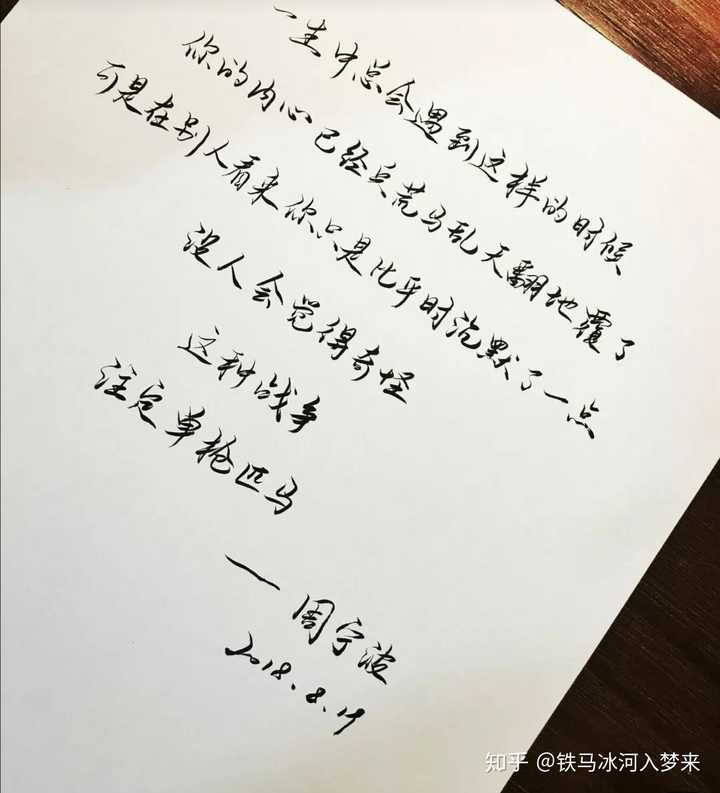 一生中总会遇到这样的时候
你的内心已经兵荒马乱天翻地覆了
可是在别人看来你只是比平时沉默了一点
没人会觉得奇怪
这种战争
注定单枪匹马
— 周宁波
2018.8.19
知乎 @铁马冰河入梦来